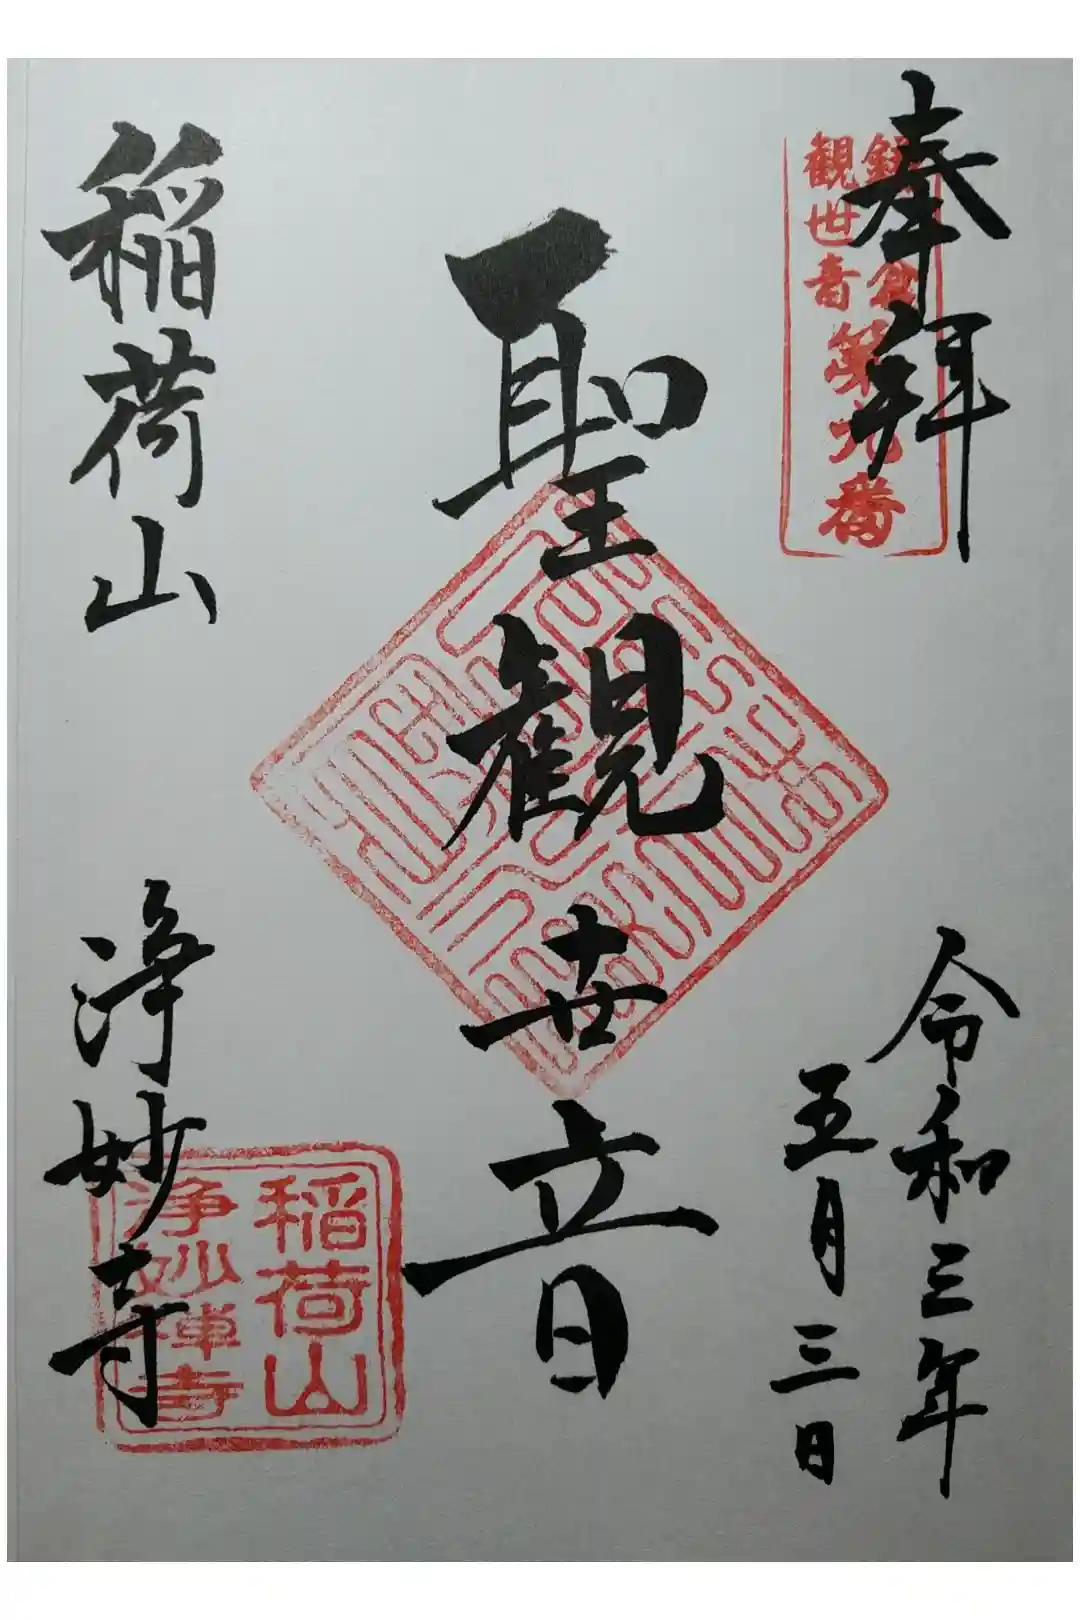 奉拝
鎌倉
観世音
第九番
令和三年
五月三日
聖観世音
稲荷山
浄妙寺
稲荷山
浄妙禅寺